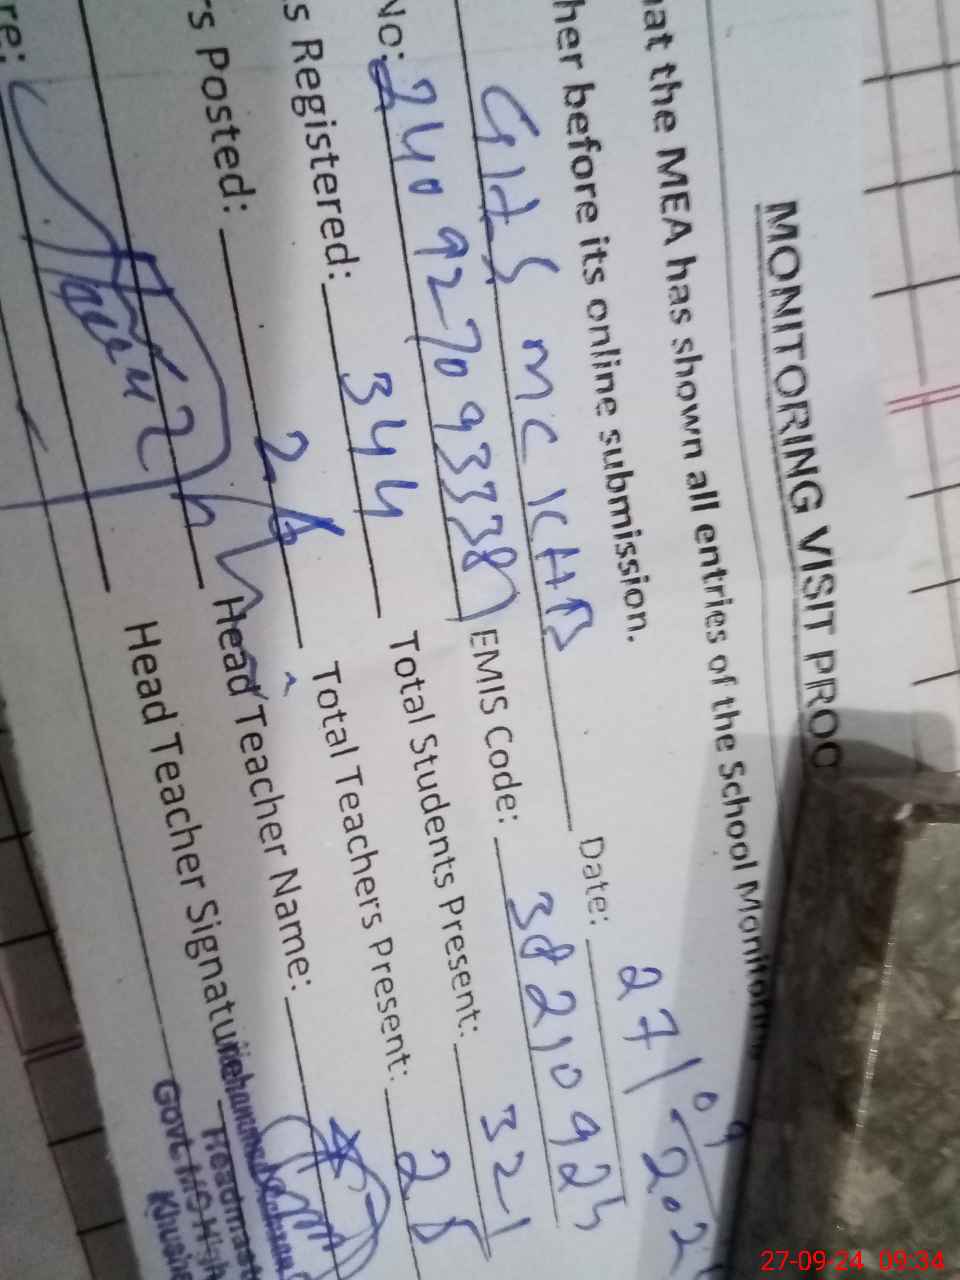 MONITORING VISIT PROO
hat the MEA has shown all entries of the School Monitoring
her before its online submission.
GHS MC KHB Date: 27/09/202
No: 240927093338 EMIS Code: 38210925
s Registered: 344 Total Students Present: 321
rs Posted: Total Teachers Present: 28
Head Teacher Name:
re: Head Teacher Signature
Headmast
Govt MC High
Khusha
27-09-24 09:34